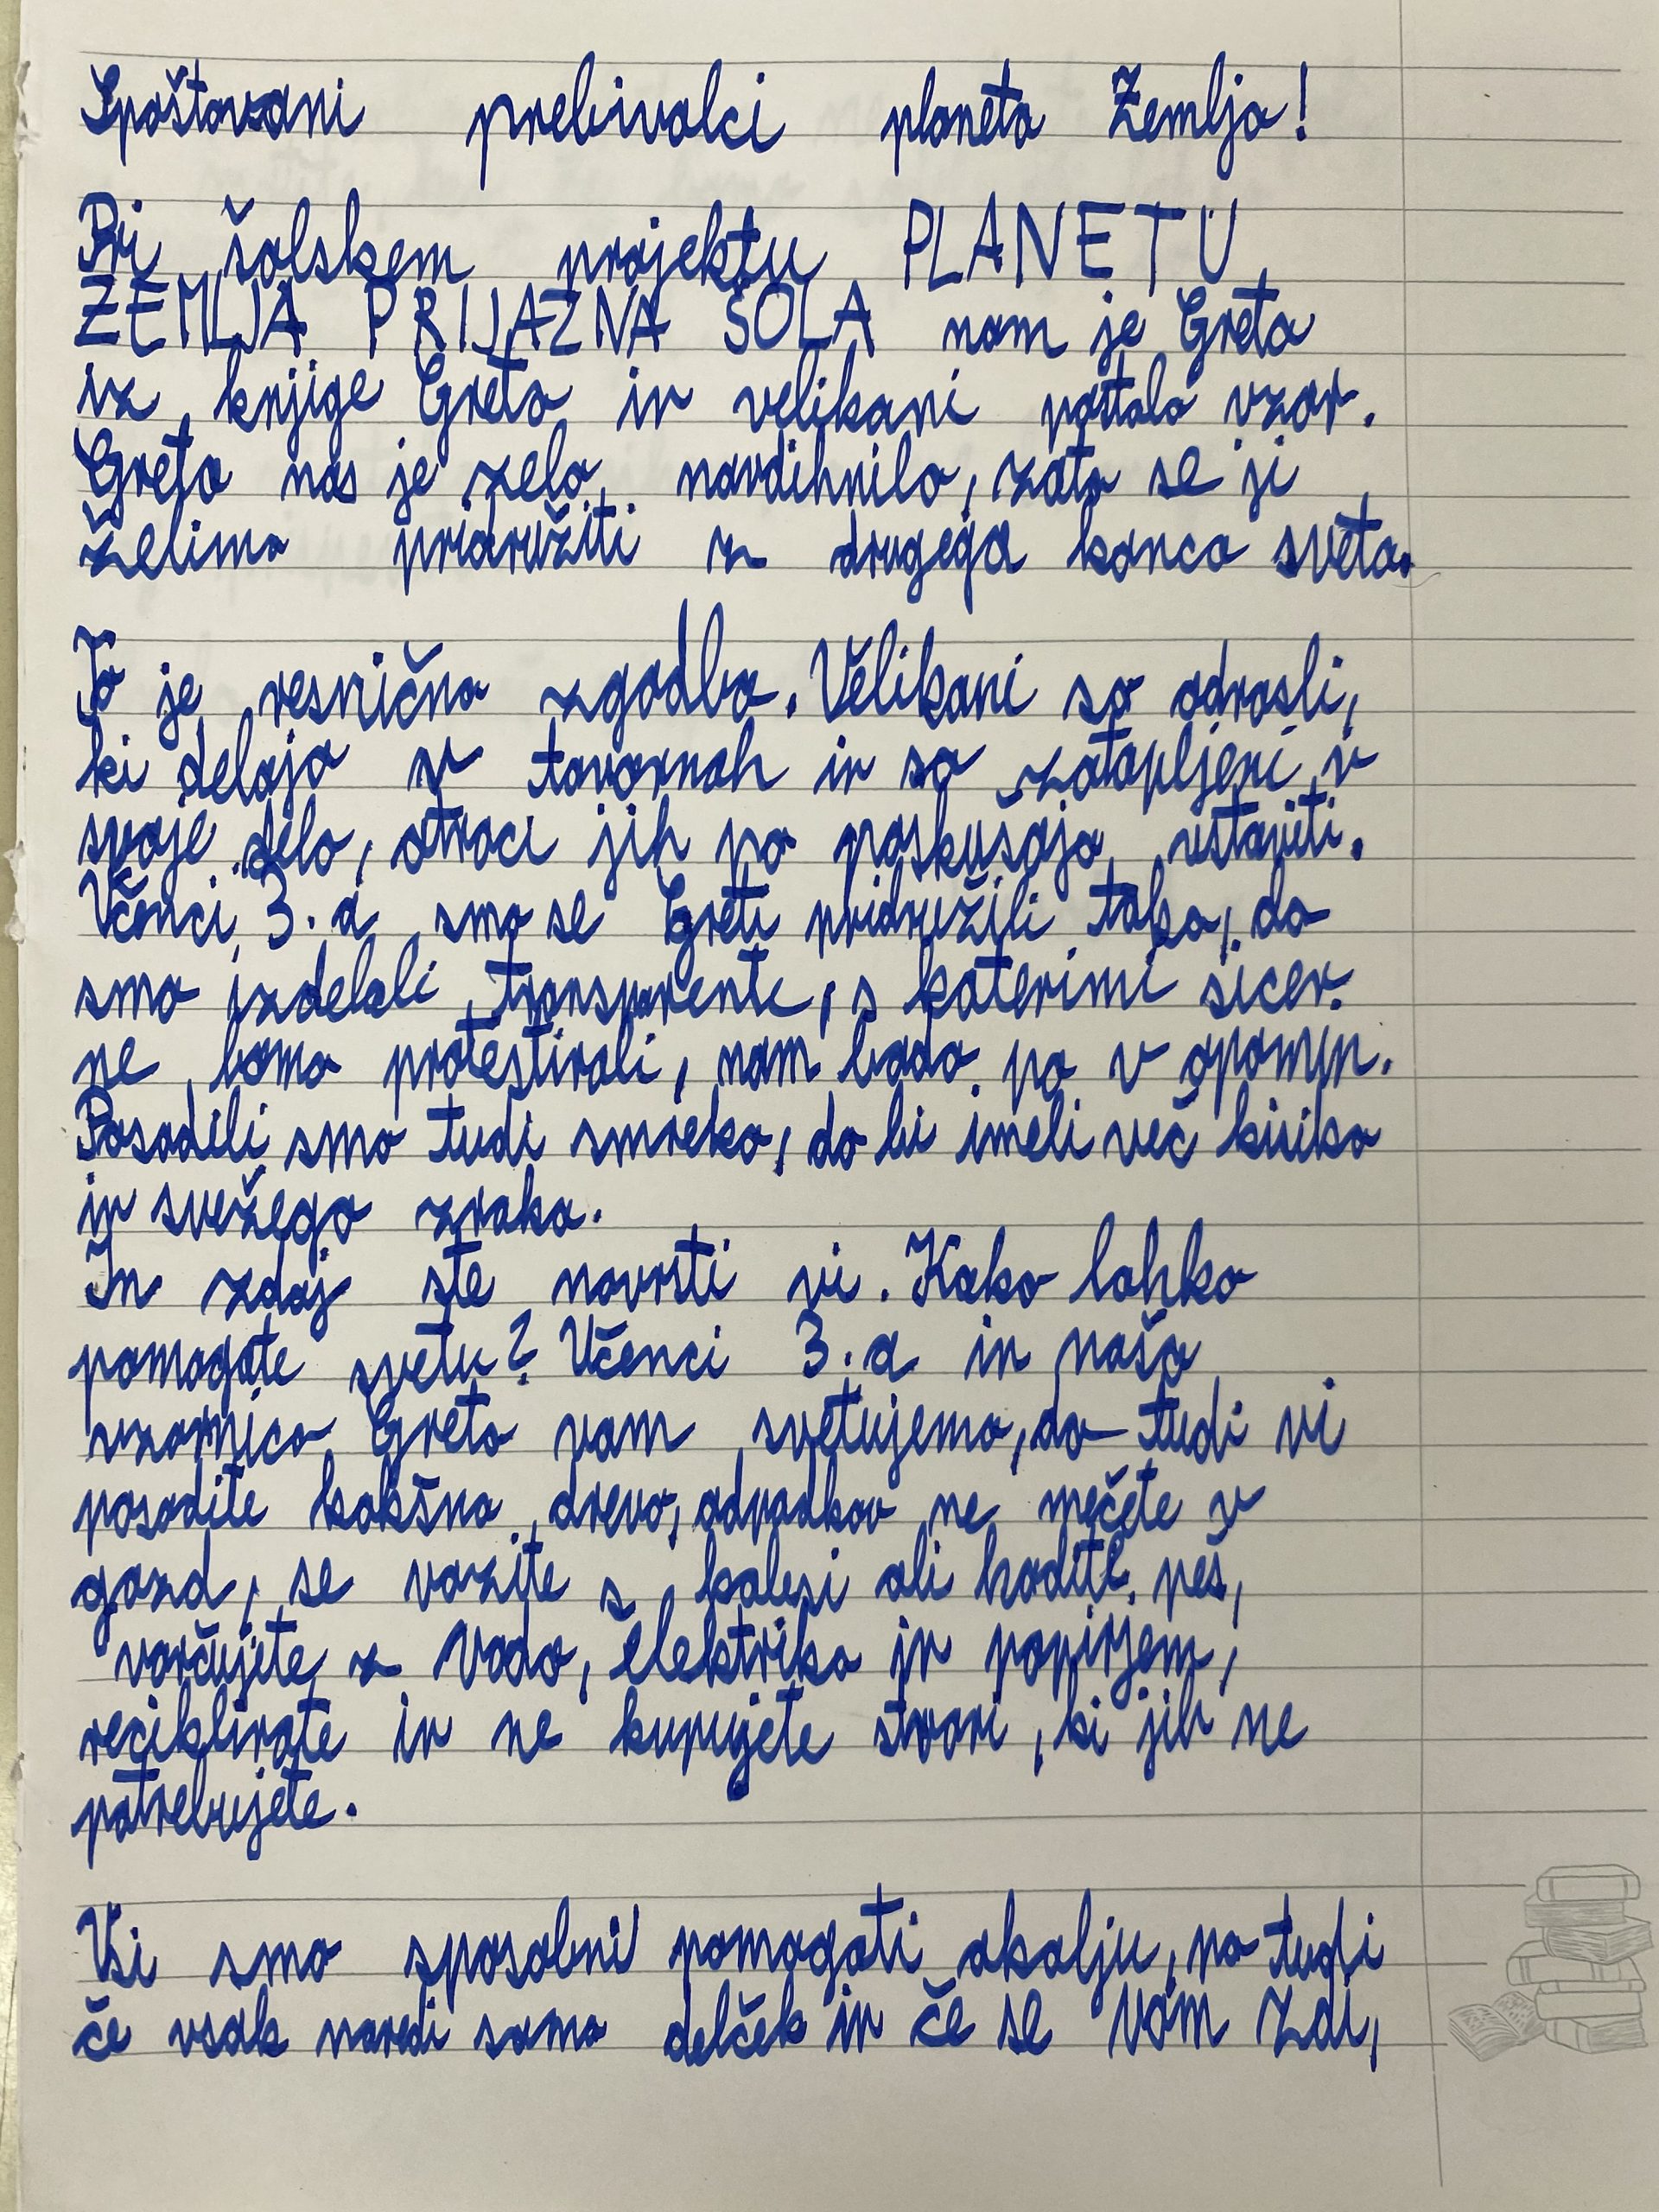 Spoštovani prebivalci planeta Zemlja!
Pri šolskem projektu PLANETU
ZEMLJA PRIJAZNA ŠOLA nam je Greta
iz knjige Greta in velikani postala vzor.
Greta nas je zelo navdihnila, zato se ji
želimo pridružiti z drugega konca sveta.
To je resnična zgodba. Velikani so odrasli,
ki delajo v tovarnah in so zatopljeni v
svoje delo, otroci jih pa poskušajo ustaviti.
Učenci 3. a smo se Greti pridružili tako, da
smo izdelali transparente, s katerimi sicer
ne bomo protestirali, nam bodo pa v opomin.
Posadili smo tudi smreko, da bi imeli več kisika
in svežega zraka.
In zdaj ste na vrsti vi. Kako lahko
pomagate svetu? Učenci 3. a in naša
vzornica Greta vam svetujemo, da tudi vi
posadite kakšno drevo, odpadkov ne mečete v
gozd, se vozite s kolesi ali hodite peš,
varčujete z vodo, elektriko in papirjem,
reciklirate in ne kupujete stvari, ki jih ne
potrebujete.
Vsi smo sposobni pomagati okolju, pa tudi
če vsak naredi samo delček in če se vam zdi,